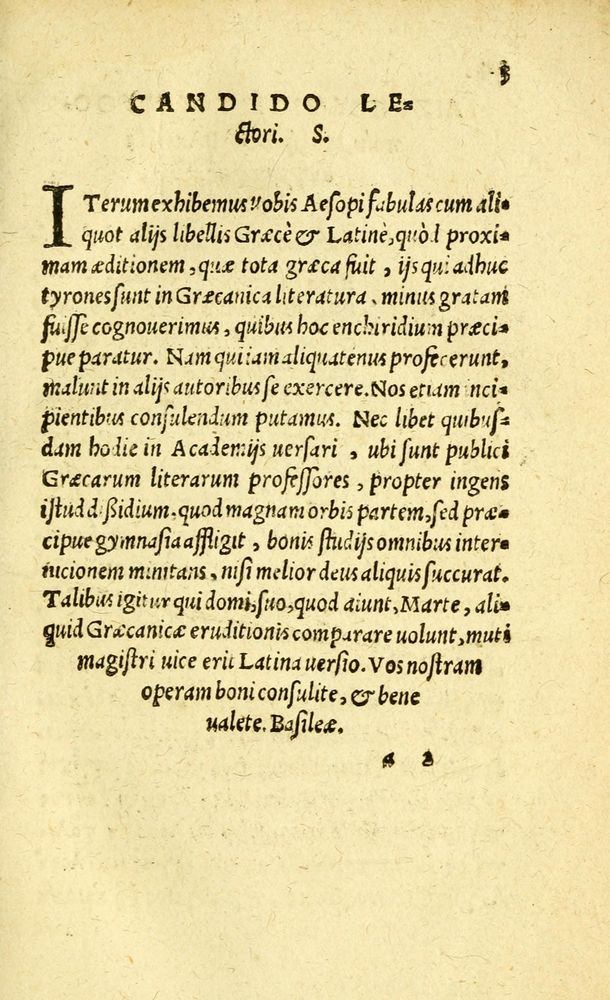 3
CANDIDO LE-
ctori. S.
ITerum exhibemus vobis Aesopi fabulas cum ali-
quot alijs libellis Græcè & Latinè, quòd proxi-
mam æditionem, quæ tota græca fuit, ijs qui adhuc
tyrones sunt in Græcanica literatura, minus gratam
fuisse cognouerimus, quibus hoc enchiridium præci-
pue paratur. Nam qui iam aliquatenus profecerunt,
malunt in alijs autoribus se exercere. Nos etiam inci-
pientibus consulendum putamus. Nec libet quibus-
dam hodie in Academijs uersari, ubi sunt publici
Græcarum literarum professores, propter ingens
istud dißidium, quod magnam orbis partem, sed præ-
cipue gymnasia affligit, bonis studijs omnibus inter-
nicionem minitans, nisi melior deus aliquis succurat.
Talibus igitur qui domi, suo, quod aiunt, Marte, ali-
quid Græcanicæ eruditionis comparare uolunt, muti
magistri uice erit Latina uersio. Vos nostram
operam boni consulite, & bene
ualete. Basileæ.
a 2